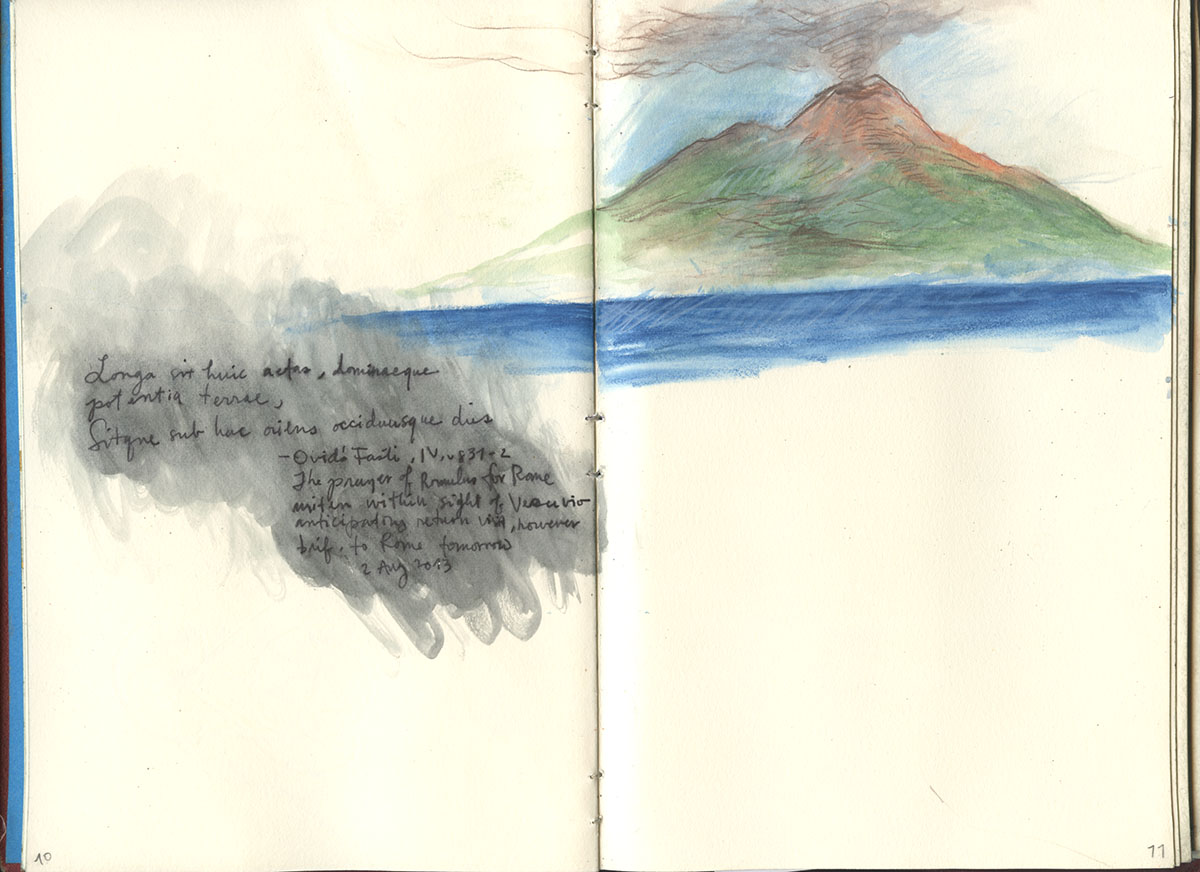 Longa sit huic aetas, dominaeque
potentia terrae,
Sitque sub hac oriens occiduusque dies
- Ovid's Fasti, IV, v831-2
The prayer of Romulus for Rome
written within sight of Vesuvio
anticipating return visit, however
brief, to Rome tomorrow
2 Aug 2013
10
11